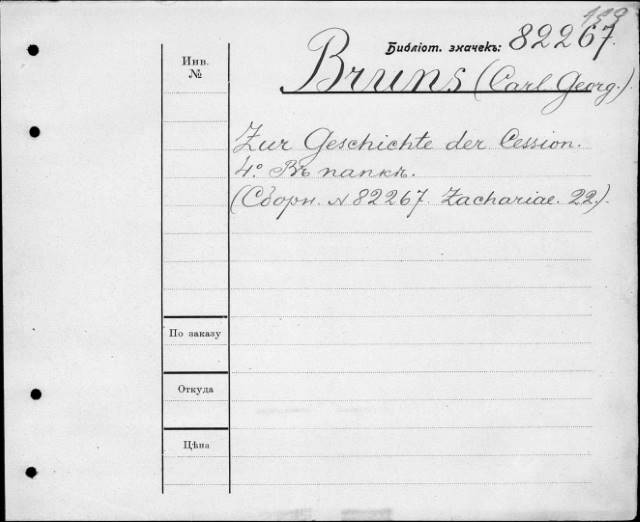 Библіот. значекъ: 82267.
Инв. №
Bruns (Carl Georg.)
Zur Geschichte der Cession.
4.° Въ папкѣ.
(Сборн. № 82267. Zachariae. 22.).
По заказу
Откуда
Цѣна